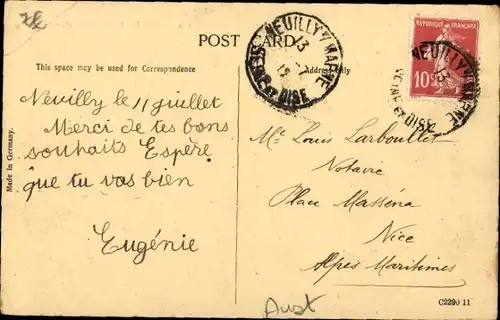 POST CARD
This space may be used for Correspondence
Address only
Neuilly le 11 juillet
Merci de tes bons
souhaits Espère
que tu vas bien
Eugénie
Made in Germany.
NEUILLY S/ MARNE
13
SEINE ET OISE
REPUBLIQUE FRANÇAISE
10c
NEUILLY S/ MARNE
13
SEINE ET OISE
Me Louis Larboullet
Notaire
Place Masséna
Nice
Alpes Maritimes
C2290 11
Aust